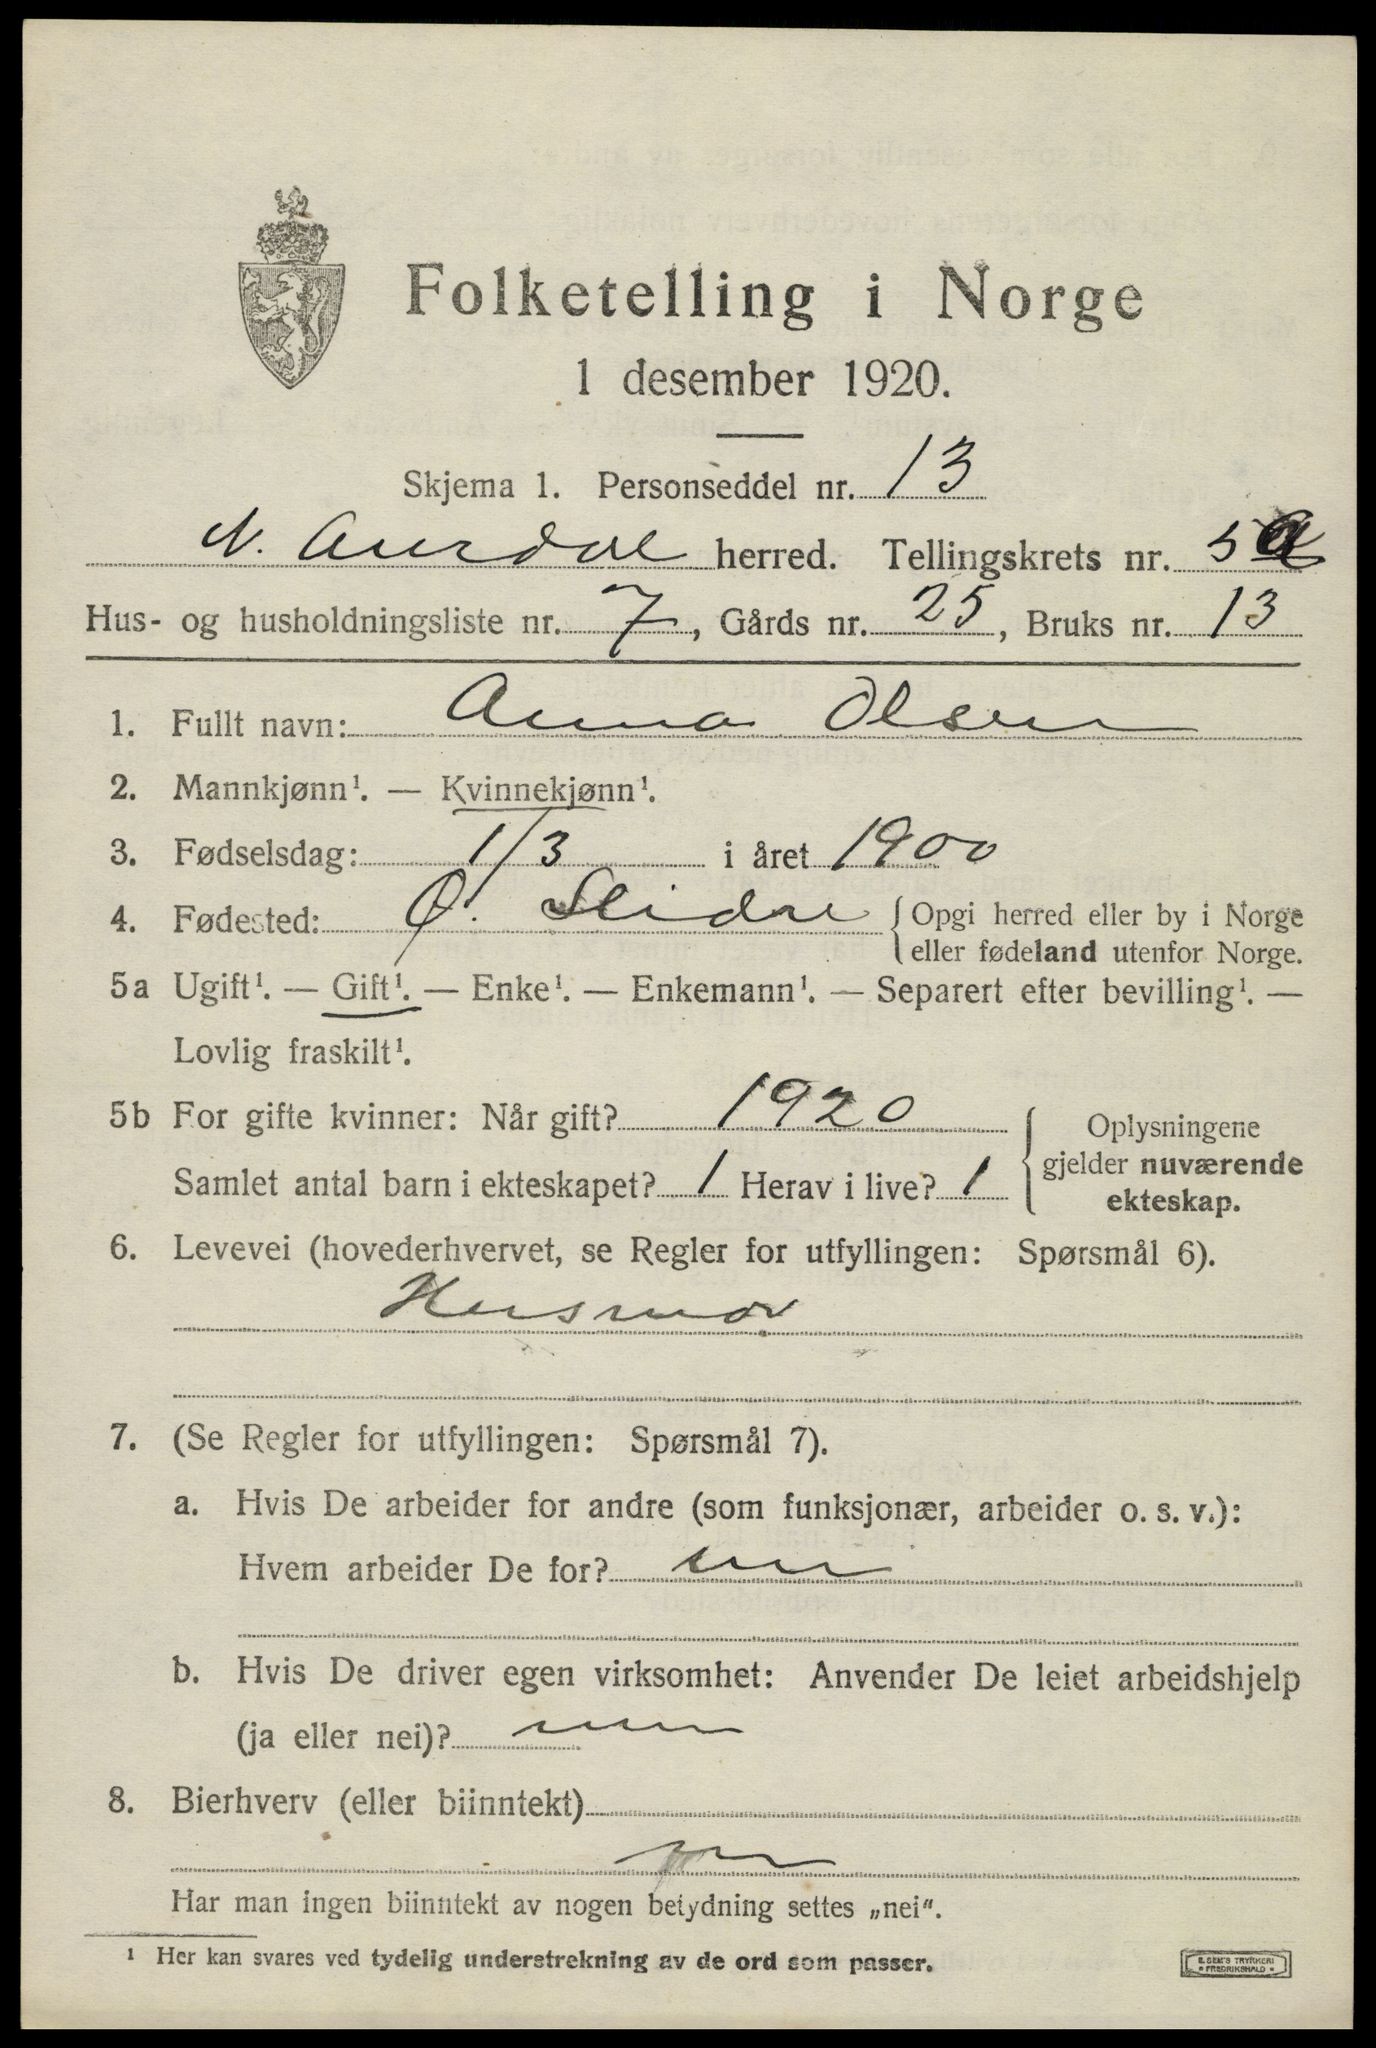 Folketelling i Norge
1 desember 1920.
Skjema 1. Personseddel nr. 13
N. Aurdal herred. Tellingskrets nr. 5a
Hus- og husholdningsliste nr. 7, Gårds nr. 25, Bruks nr. 13
1. Fullt navn: Anna Olsen
2. Mannkjønn¹. — Kvinnekjønn¹.
3. Fødselsdag: 1/3 i året 1900
4. Fødested: Ø. Slidre { Opgi herred eller by i Norge
eller fødeland utenfor Norge.
5a Ugift¹. — Gift¹. — Enke¹. — Enkemann¹. — Separert efter bevilling¹. —
Lovlig fraskilt¹.
5b For gifte kvinner: Når gift? 1920
Samlet antal barn i ekteskapet? 1 Herav i live? 1
Oplysningene
gjelder nuværende
ekteskap.
6. Levevei (hovederhvervet, se Regler for utfyllingen: Spørsmål 6).
Husmor
7. (Se Regler for utfyllingen: Spørsmål 7).
a. Hvis De arbeider for andre (som funksjonær, arbeider o. s. v.):
Hvem arbeider De for?
b. Hvis De driver egen virksomhet: Anvender De leiet arbeidshjelp
(ja eller nei)?
8. Bierhverv (eller biinntekt)
Har man ingen biinntekt av nogen betydning settes „nei".
¹ Her kan svares ved tydelig understrekning av de ord som passer.
E. SEM'S TRYKKERI
FREDRIKSHALD